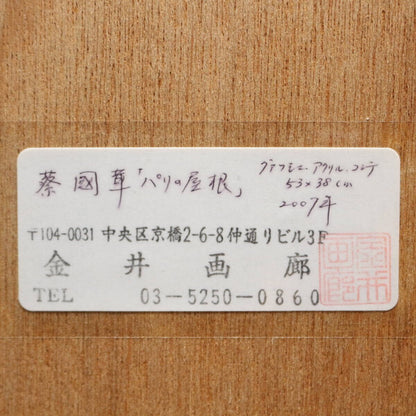 蔡國華「パリの屋根」
グアッシュ.アクリル.コンテ
53×38cm
2007年
〒104-0031 中央区京橋2-6-8仲通りビル3F
金井画廊
TEL 03-5250-0860